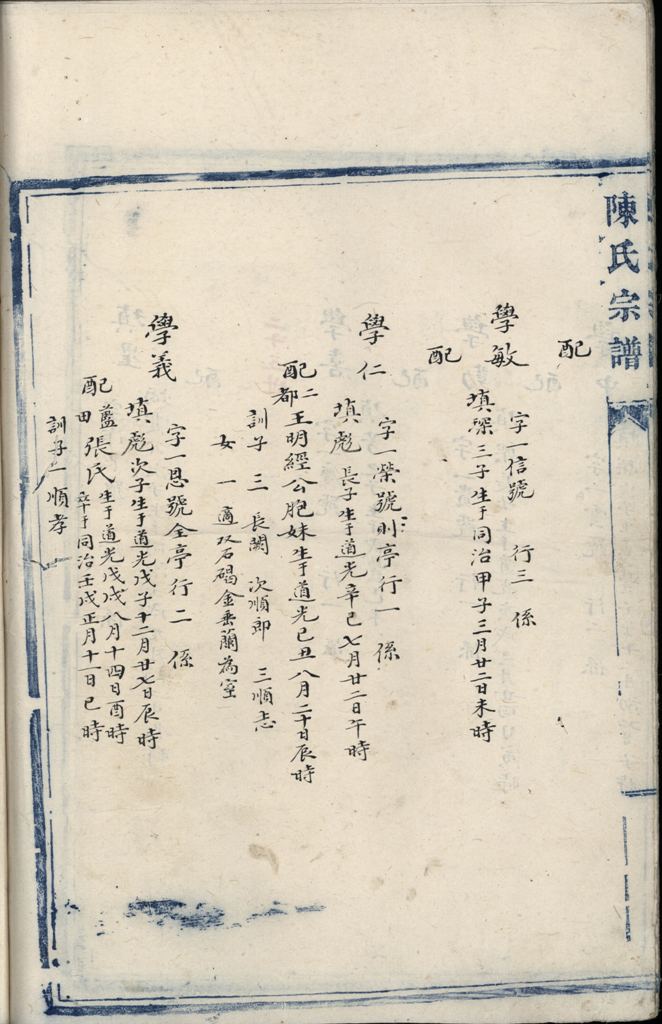 陳氏宗譜
配
學敏
字一信號 行三 係
填深三子生于同治甲子三月廿二日未時
配
學仁
字一榮號則亭行一 係
填彪長子生于道光辛巳七月廿二日午時
配二都王明經公胞妹生于道光己丑八月二十日辰時
訓子 三 長闕 次順郎 三順志
女 一 適双石碣金垂蘭為室
學義
字一恩號全亭行二 係
填彪次子生于道光戊子十二月廿七日辰時
配藍田張氏生于道光戊戌八月十四日酉時
卒于同治壬戌正月十一日巳時
訓子一順孝